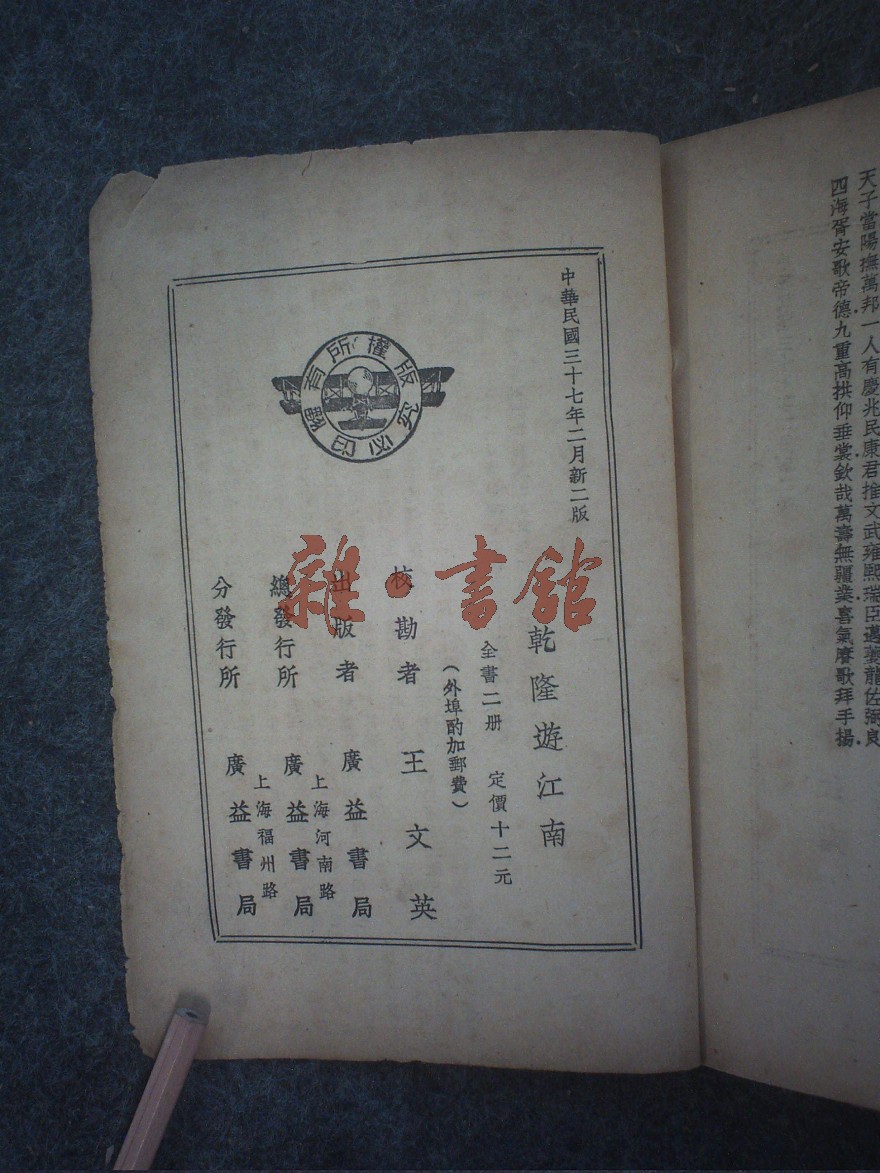 天子當陽撫萬邦一人有慶兆民康君推文武雍熙瑞臣邁夔龍佐弼良
四海胥安歌帝德九重高拱仰垂裳欽哉萬壽無疆業喜氣賡歌拜手揚
中華民國三十七年二月新二版
乾隆遊江南
全書二册 定價十二元
(外埠酌加郵費)
校勘者 王文英
出版者 廣益書局
上海河南路
總發行所 廣益書局
上海福州路
分發行所 廣益書局
版權所有翻印必究
雜·書館